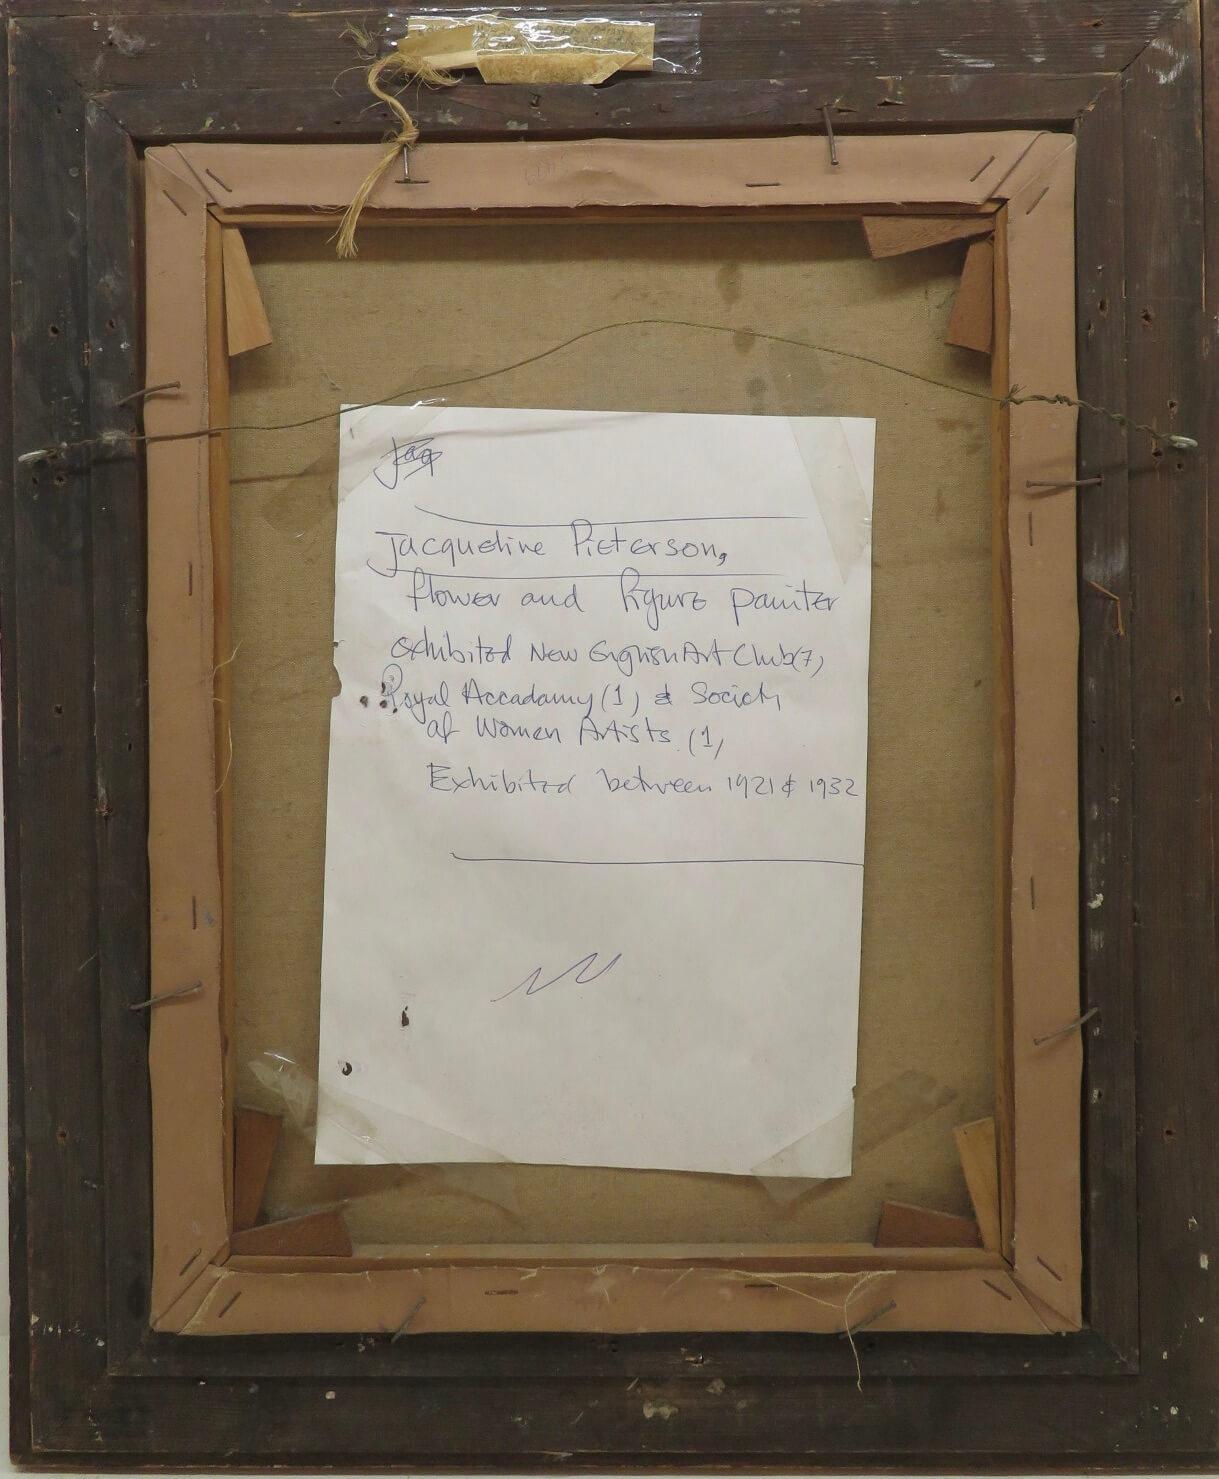 Jaq
Jacqueline Pieterson,
flower and figure painter
exhibited New English Art Club (7)
Royal Accadamy (1) & Society
of Women Artists (1)
Exhibited between 1921 & 1932